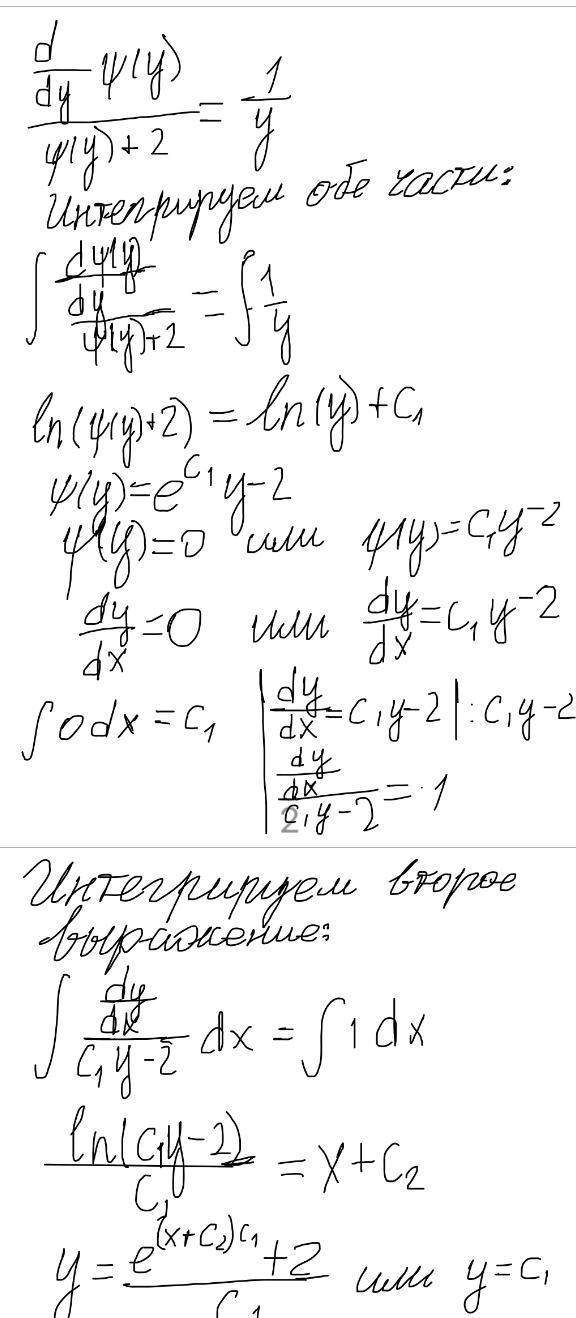 d/dy ψ(y) / ψ(y)+2 = 1/y
Интегрируем обе части:
∫ dψ(y)/dy / ψ(y)+2 = ∫ 1/y
ln(ψ(y)+2) = ln(y)+C₁
ψ(y)=e^C₁ y-2
ψ(y)=0 или ψ(y)=C₁y-2
dy/dx=0 или dy/dx=C₁y-2
∫0dx=C₁ | dy/dx=C₁y-2 | :C₁y-2
dy/dx / C₁y-2 = 1
2
Интегрируем второе
выражение:
∫ dy/dx / C₁y-2 dx = ∫1dx
ln(C₁y-2) / C₁ = x+C₂
y = e^(x+C₂)C₁ +2 / C₁ или y=C₁